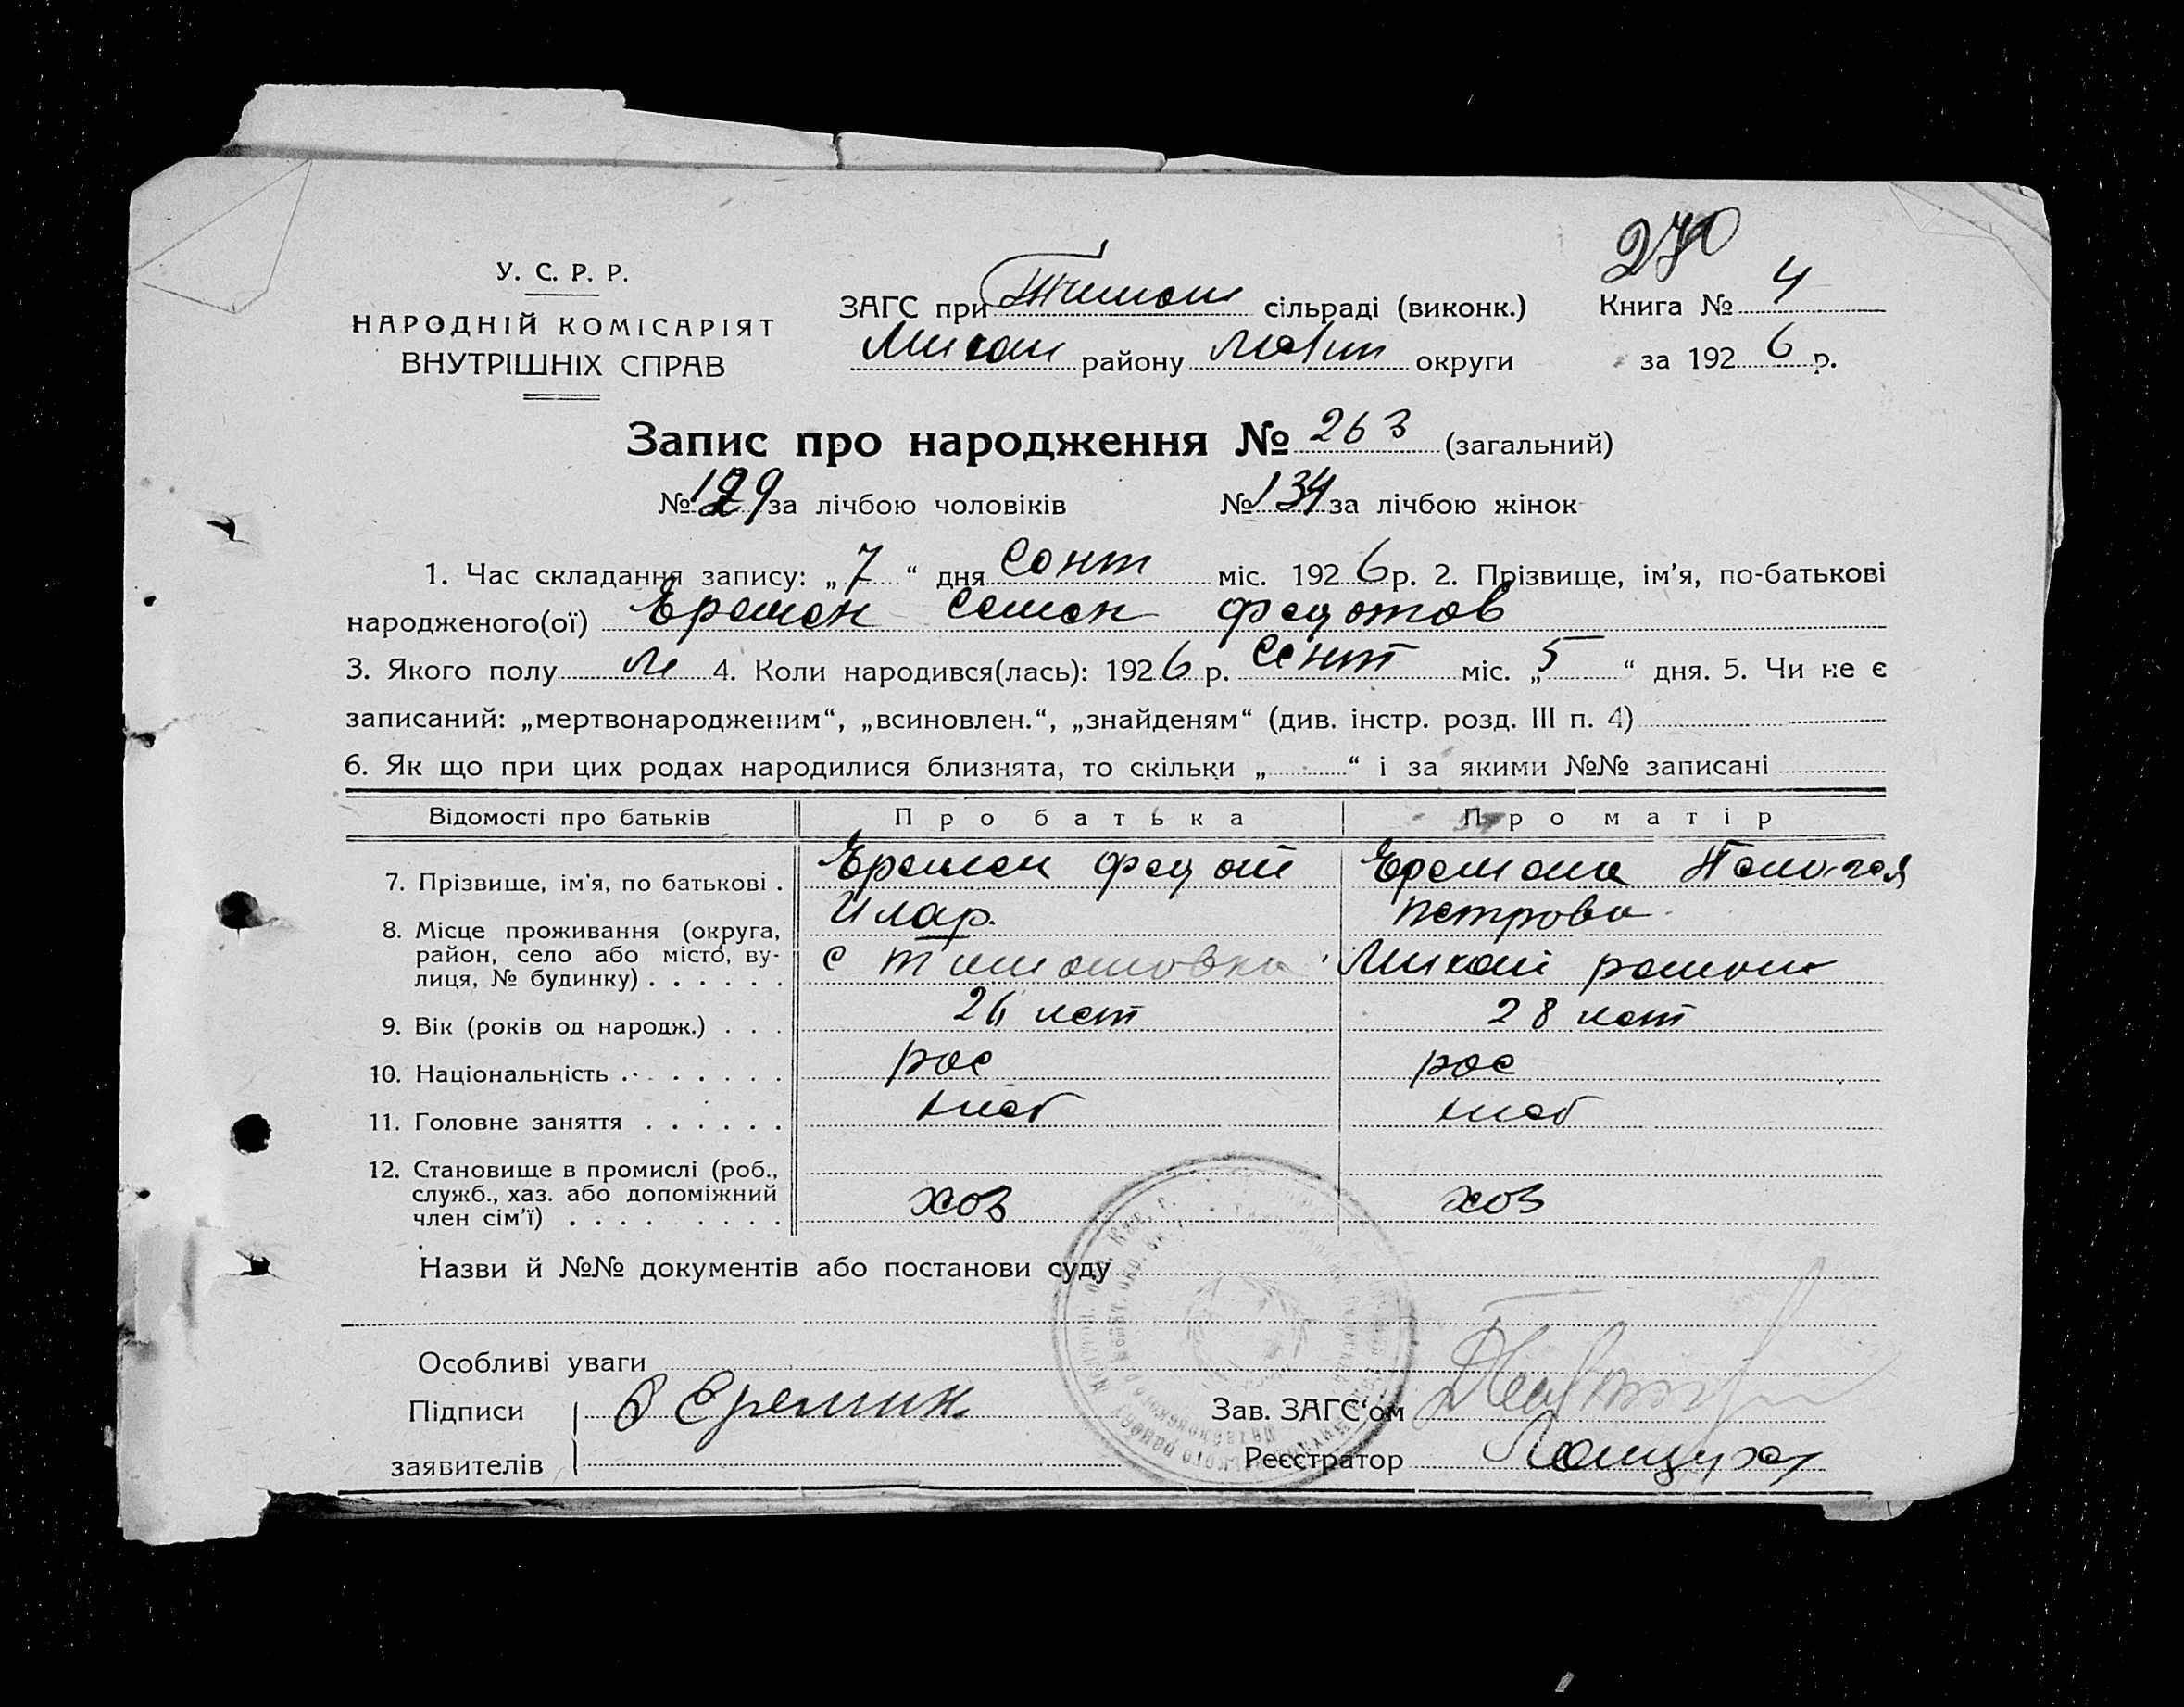 270
У. С. Р. Р.
НАРОДНІЙ КОМІСАРІЯТ
ВНУТРІШНІХ СПРАВ
ЗАГС при Тимош сільраді (виконк.)
Михай району Меліт округи
Книга № 4
за 1926 р.
Запис про народження № 263 (загальний)
№ 129 за лічбою чоловіків № 134 за лічбою жінок
1. Час складання запису: „7“ дня Сент міс. 1926 р. 2. Прізвище, ім'я, по-батькові
народженого(ої) Еремен Семен Федотов
3. Якого полу м 4. Коли народився(лась): 1926 р. Сент міс. „5“ дня. 5. Чи не є
записаний: „мертвонародженим“, „всиновлен.“, „знайденям“ (див. інстр. розд. III п. 4)
6. Як що при цих родах народилися близнята, то скільки „ “ і за якими №№ записані
Відомості про батьків Про батька Про матір
7. Прізвище, ім'я, по батькові . Еремен Федот Пелагея
Илар. Петрова
8. Місце проживання (округа,
район, село або місто, ву-
лиця, № будинку) . . . . . . с Тимошовка
9. Вік (років од народж.) . . . 26 лет 28 лет
10. Національність . . . . . . . рос рос
11. Головне заняття . . . . . . хлеб хлеб
12. Становище в промислі (роб.,
служб., хаз. або допоміжний
член сім'ї) . . . . . . . . . хоз хоз
Назви й №№ документів або постанови суду
Особливі уваги
Підписи Еремин
заявителів
Зав. ЗАГС‘ом
Реєстратор